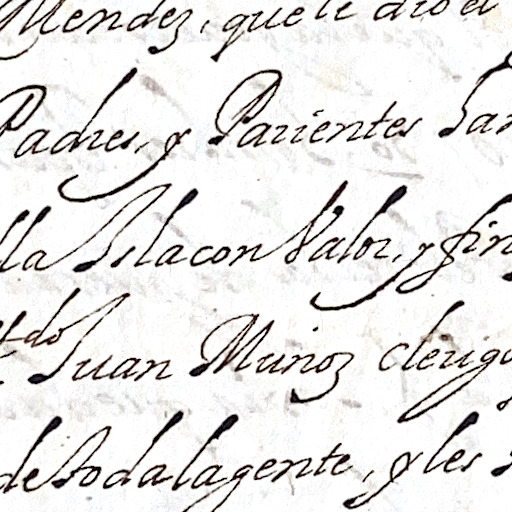 Mendez, que le dio el
Padres, y Parientes
lla Isla con Valor, y fin
Juan Munoz clerigo
de toda la gente, y les